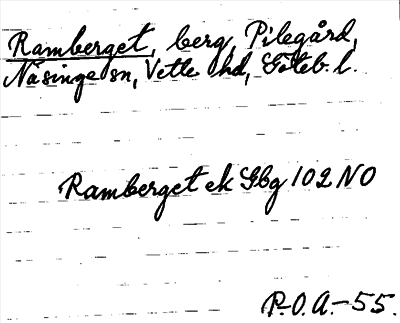 Ramberget, berg, Pilegård,
Näsinge sn, Vette hd, Göteb. l.
Ramberget ek Gbg 102 NO
P.O.A.-55.